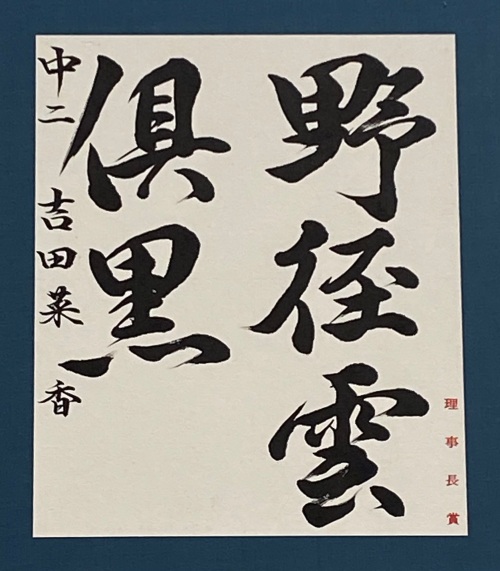 野径雲
俱黒
中二 吉田菜香
理事長賞